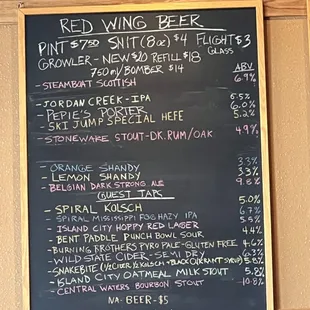 RED WING BEER
PINT $7.50 SNIT (8oz) $4 FLIGHT $3
GLASS
GROWLER - NEW $20 REFILL $18
750ml/BOMBER $14
ABV
- STEAMBOAT SCOTTISH 6.9%
- JORDAN CREEK - IPA 6.5%
- PEPIE'S PORTER 6.0%
- SKI JUMP SPECIAL HEFE 5.2%
- STONEWAKE STOUT-DK.RUM/OAK 4.9%
- ORANGE SHANDY 3.3%
- LEMON SHANDY 3.3%
- BELGIAN DARK STRONG ALE 9.8%
GUEST TAPS
- SPIRAL KOLSCH 5.0%
- SPIRAL MISSISSIPPI FOG HAZY IPA 6.7%
- ISLAND CITY HOPPY RED LAGER 5.5%
- BENT PADDLE PUNCH BOWL SOUR 4.4%
- BURNING BROTHERS PYRO PALE-GLUTEN FREE 4.6%
- WILD STATE CIDER - SEMI DRY 6.3%
- SNAKEBITE (1/2 CIDER 1/2 KOLSCH + BLACK CURRANT SYRUP) 5.8%
- ISLAND CITY OATMEAL MILK STOUT 5.8%
- CENTRAL WATERS BOURBON STOUT 10.8%
NA BEER - $5